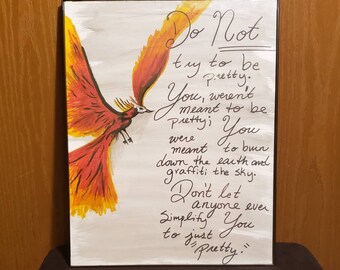 Do Not
try to be
pretty.
You, weren't
meant to be
pretty; You
were
meant to burn
down the earth and
graffiti the sky.
Don't let
anyone ever
Simplify You
to just
"pretty."